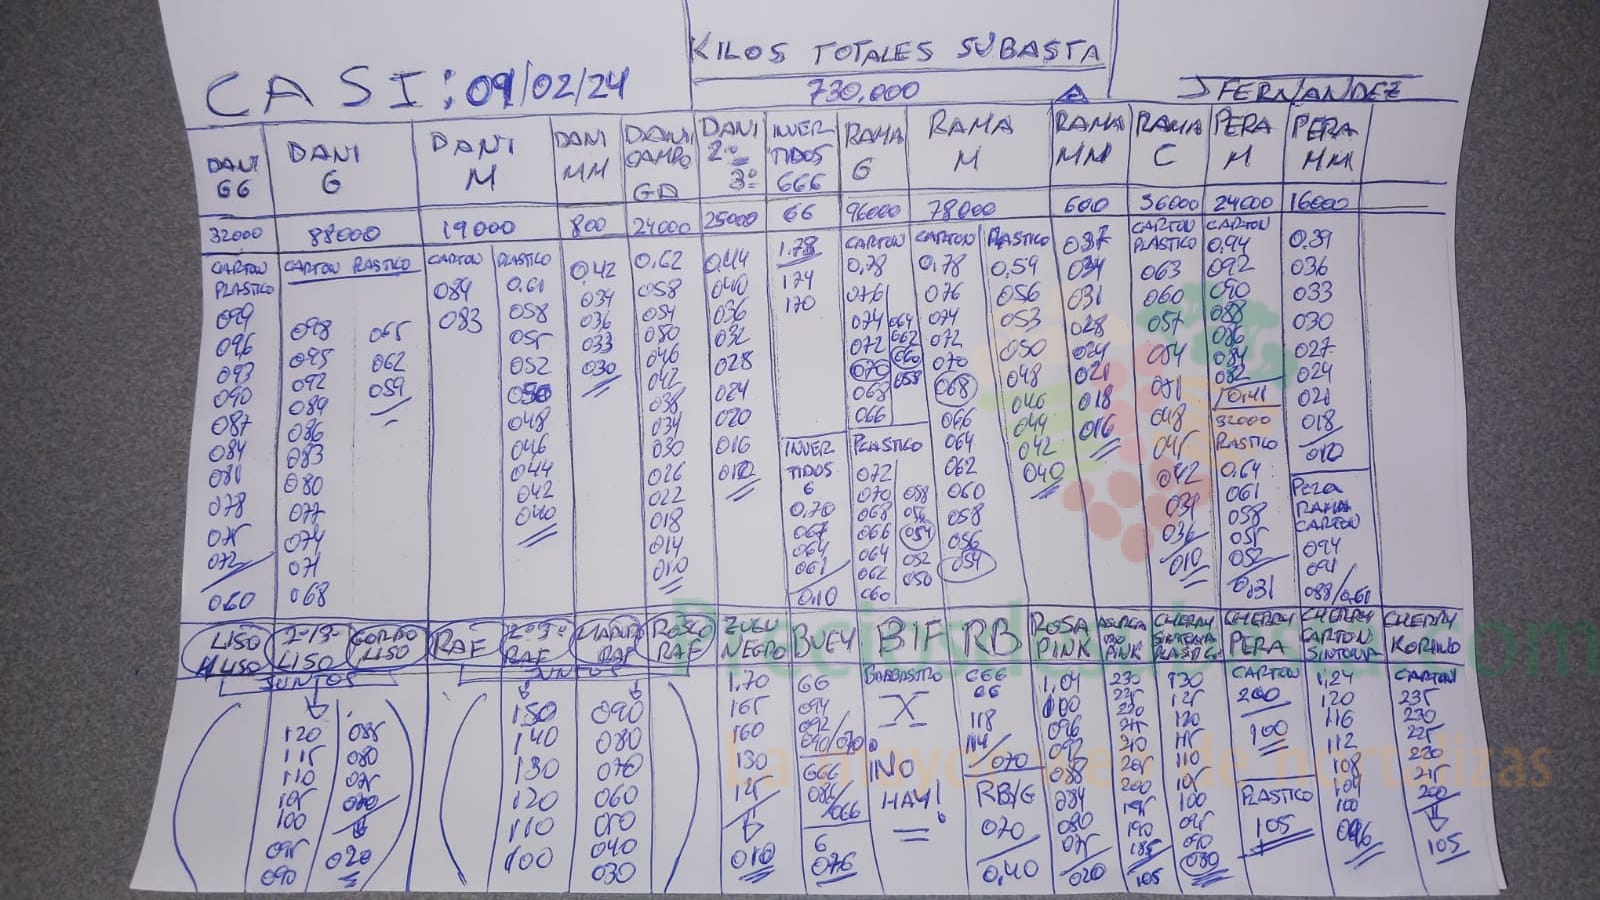 KILOS TOTALES SUBASTA
CASI: 09/02/24
730.000
J FERNANDEZ
DANI GG
DANI G
DANI M
DANI MM
DANI CAMPO GD
DANI 2ª 3ª
INVERTIDOS GGG
RAMA G
RAMA M
RAMA MM
RAMA C
PERA M
PERA MM
32000
88000
19000
800
24000
25000
GG
96000
78000
600
36000
24000
16000
CARTON PLASTICO
099
096
093
090
087
084
081
078
075
072
060
CARTON
098
095
092
089
086
083
080
077
074
071
068
PLASTICO
065
062
059
CARTON
084
083
PLASTICO
0.61
058
055
052
050
048
046
044
042
040
0,42
039
036
033
030
0,62
058
054
050
046
042
038
034
030
026
022
018
014
010
0,44
040
036
032
028
024
020
016
012
1.78
174
170
INVERTIDOS
G
0,70
067
064
061
0,10
CARTON
0,78
076
074
072
070
068
066
064
062
060
058
PLASTICO
072
070
068
066
064
062
060
058
056
054
052
050
CARTON
0,78
076
074
072
070
068
066
064
062
060
058
056
054
PLASTICO
0,59
056
053
050
048
046
044
042
040
037
034
031
028
024
021
018
016
CARTON
PLASTICO
063
060
057
054
051
048
045
042
039
036
010
CARTON
0,94
092
090
088
086
084
082
0,41
32000
PLASTICO
0,64
061
058
055
052
0,31
0,39
036
033
030
027
024
021
018
010
PERA
RAMA
CARTON
094
091
088/0,61
LISO
M LISO
2-13-
LISO
GORDO
LISO
RAF
2ª 3ª
RAF
RAF
ROSCO
RAF
ZULU
NEGRO
BUEY
BIF
RB
ROSA
PINK
PINK
CHERRY
SINTONIA
PLASTICO
CHERRY
PERA
CHERRY
CARTON
SINTONIA
CHERRY
KORINO
JUNTOS
JUNTOS
120
115
110
105
100
095
090
085
080
075
070
020
150
140
130
120
110
100
090
080
070
060
050
040
030
1,70
165
160
130
125
010
GG
094
092
090/070
GGG
086
/066
G
076
BARBASTRO
X
¡NO
HAY!
GGG
GG
118
114
/070
RB/G
070
0,40
1,04
100
096
092
088
084
080
075
020
230
225
220
215
210
205
200
195
190
185
105
130
125
120
115
110
105
100
095
090
080
CARTON
200
100
PLASTICO
105
1,24
120
116
112
108
104
100
096
CARTON
235
230
225
220
215
200
105